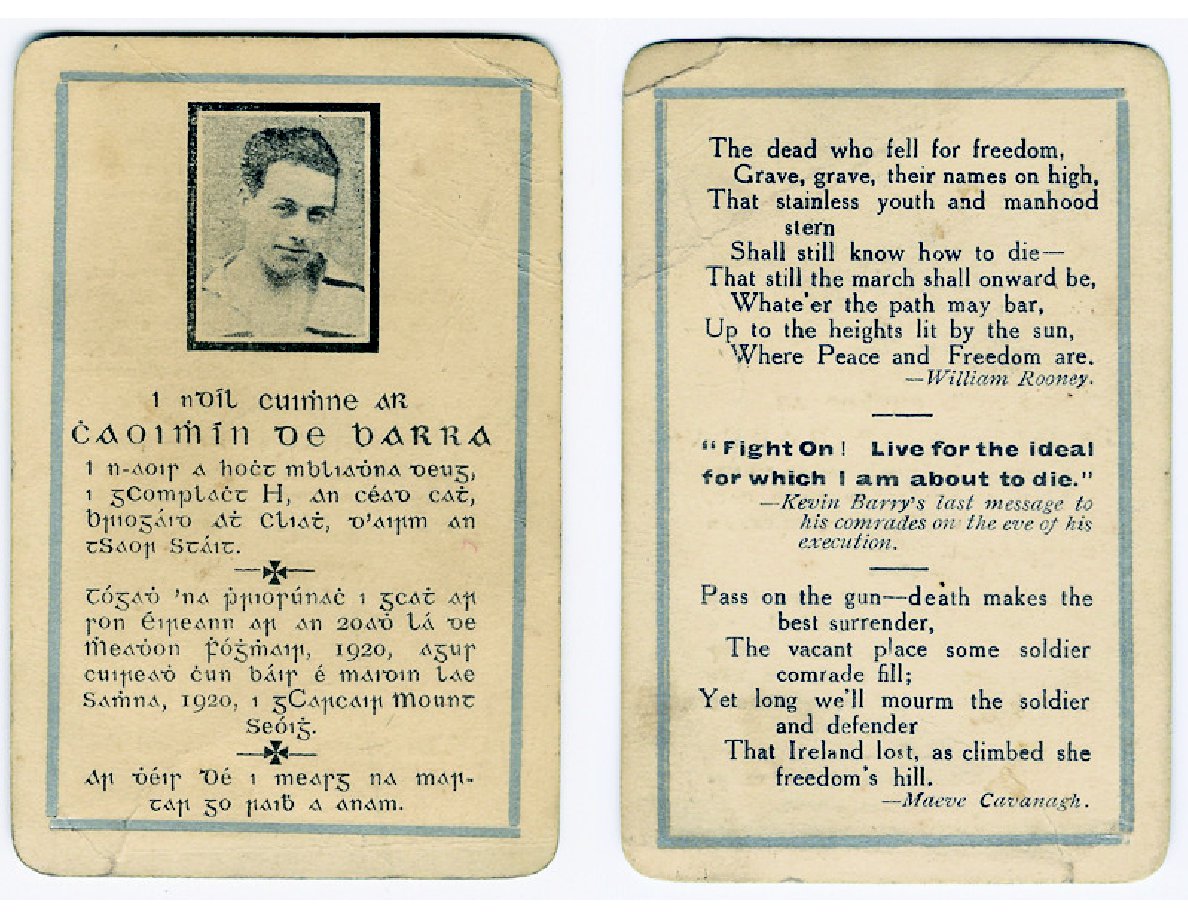 I nDíl cuiṁne ar
ĊAOIṀÍN DE BARRA
I n-aois a hoċt mbliaḋna deug,
i gComplaċt H, an céad caṫ,
Briogáid Áṫ Cliaṫ, d'airm an
tSaor Stáit.
Tógaḋ 'na ṗriosúnaċ i gcaṫ ar
son Éireann ar an 20aḋ lá de
Ṁeaḋon Ḟóġṁair, 1920, agus
cuireaḋ ċun báis é maidin lae
Saṁna, 1920, i gCarcair Mount
Seóiġ.
Ar ḋéis Dé i measg na mar-
tar go raiḃ a anam.
The dead who fell for freedom,
Grave, grave, their names on high,
That stainless youth and manhood
stern
Shall still know how to die—
That still the march shall onward be,
Whate'er the path may bar,
Up to the heights lit by the sun,
Where Peace and Freedom are.
—William Rooney.
"Fight On! Live for the ideal
for which I am about to die."
—Kevin Barry's last message to
his comrades on the eve of his
execution.
Pass on the gun—death makes the
best surrender,
The vacant place some soldier
comrade fill;
Yet long we'll mourm the soldier
and defender
That Ireland lost, as climbed she
freedom's hill.
—Maeve Cavanagh.